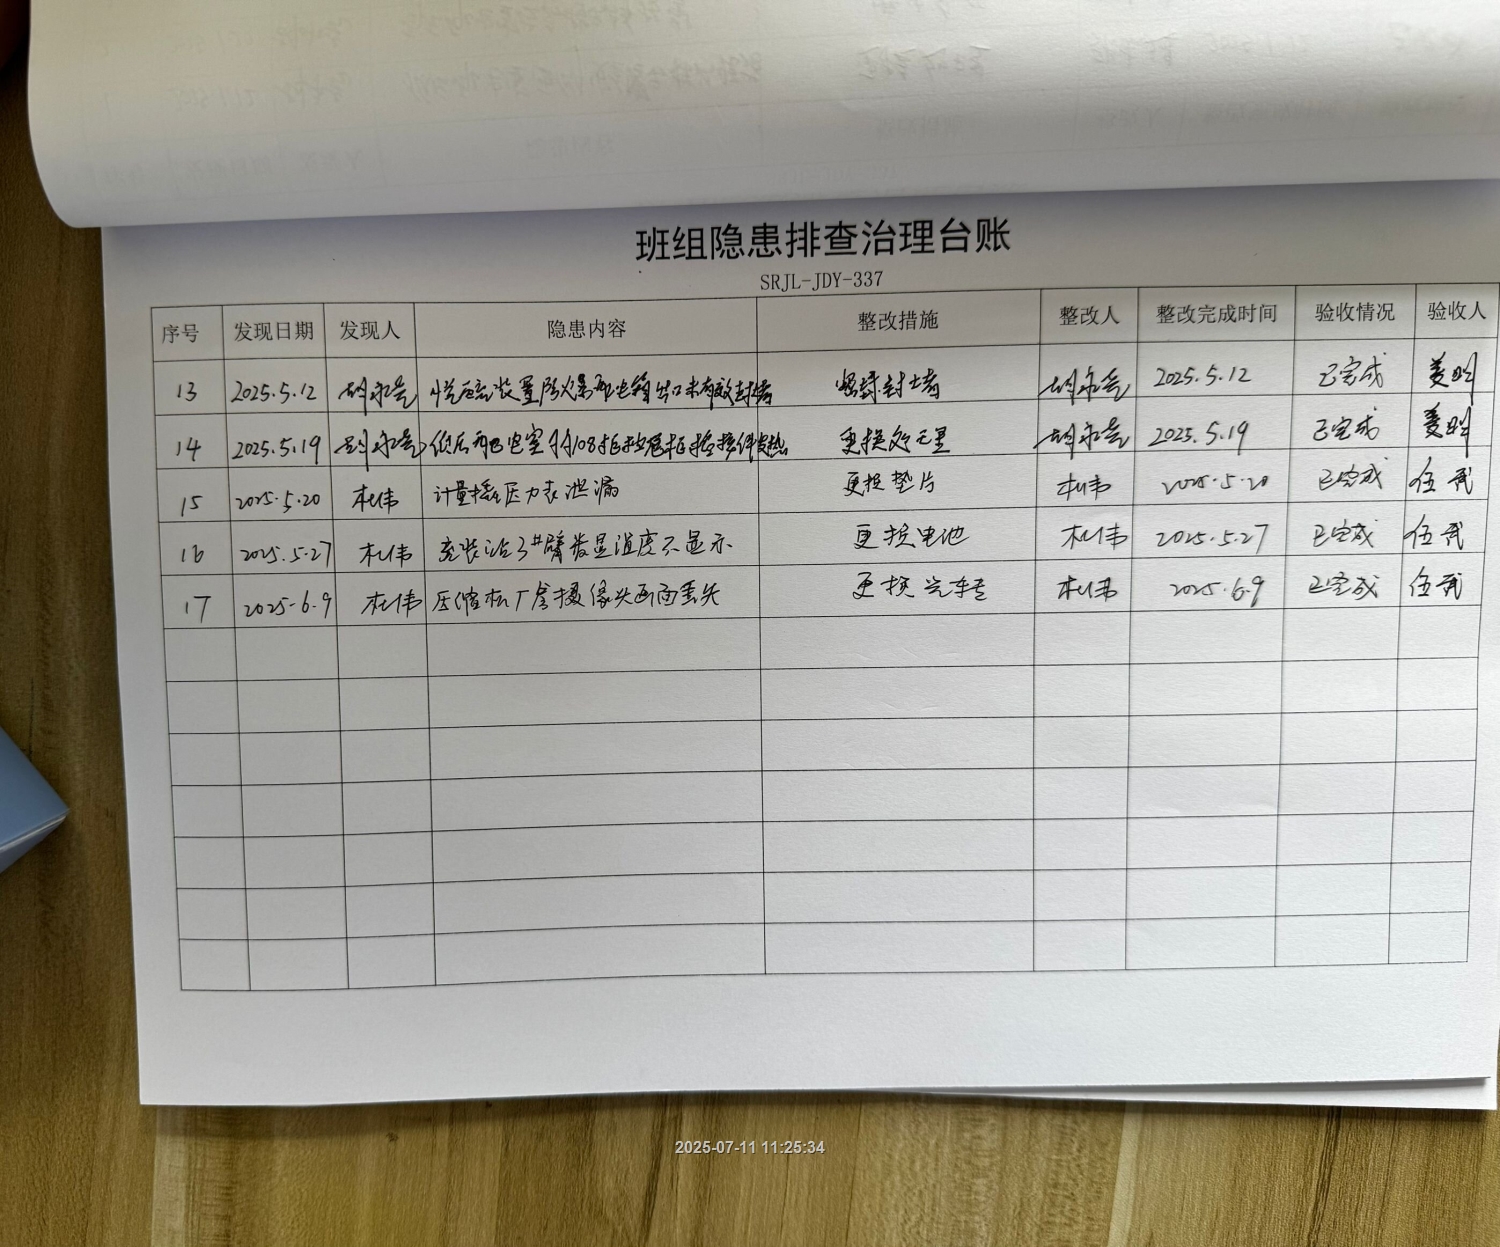 班组隐患排查治理台账
SRJL-JDY-337
序号 发现日期 发现人 隐患内容 整改措施 整改人 整改完成时间 验收情况 验收人
13 2025.5.12 装置防爆配电箱出口未有效封堵 密封封堵 2025.5.12 已完成 姜明
14 2025.5.19 低压配电室 接件发热 更换处理 2025.5.19 已完成 姜明
15 2025.5.20 杜伟 计量撬压力表泄漏 更换垫片 杜伟 2025.5.20 已完成 伍武
16 2025.5.27 杜伟 充装台3#臂 温度不显示 更换电池 杜伟 2025.5.27 已完成 伍武
17 2025.6.9 杜伟 压缩机厂房摄像头画面丢失 更换 杜伟 2025.6.9 已完成 伍武
2025-07-11 11:25:34